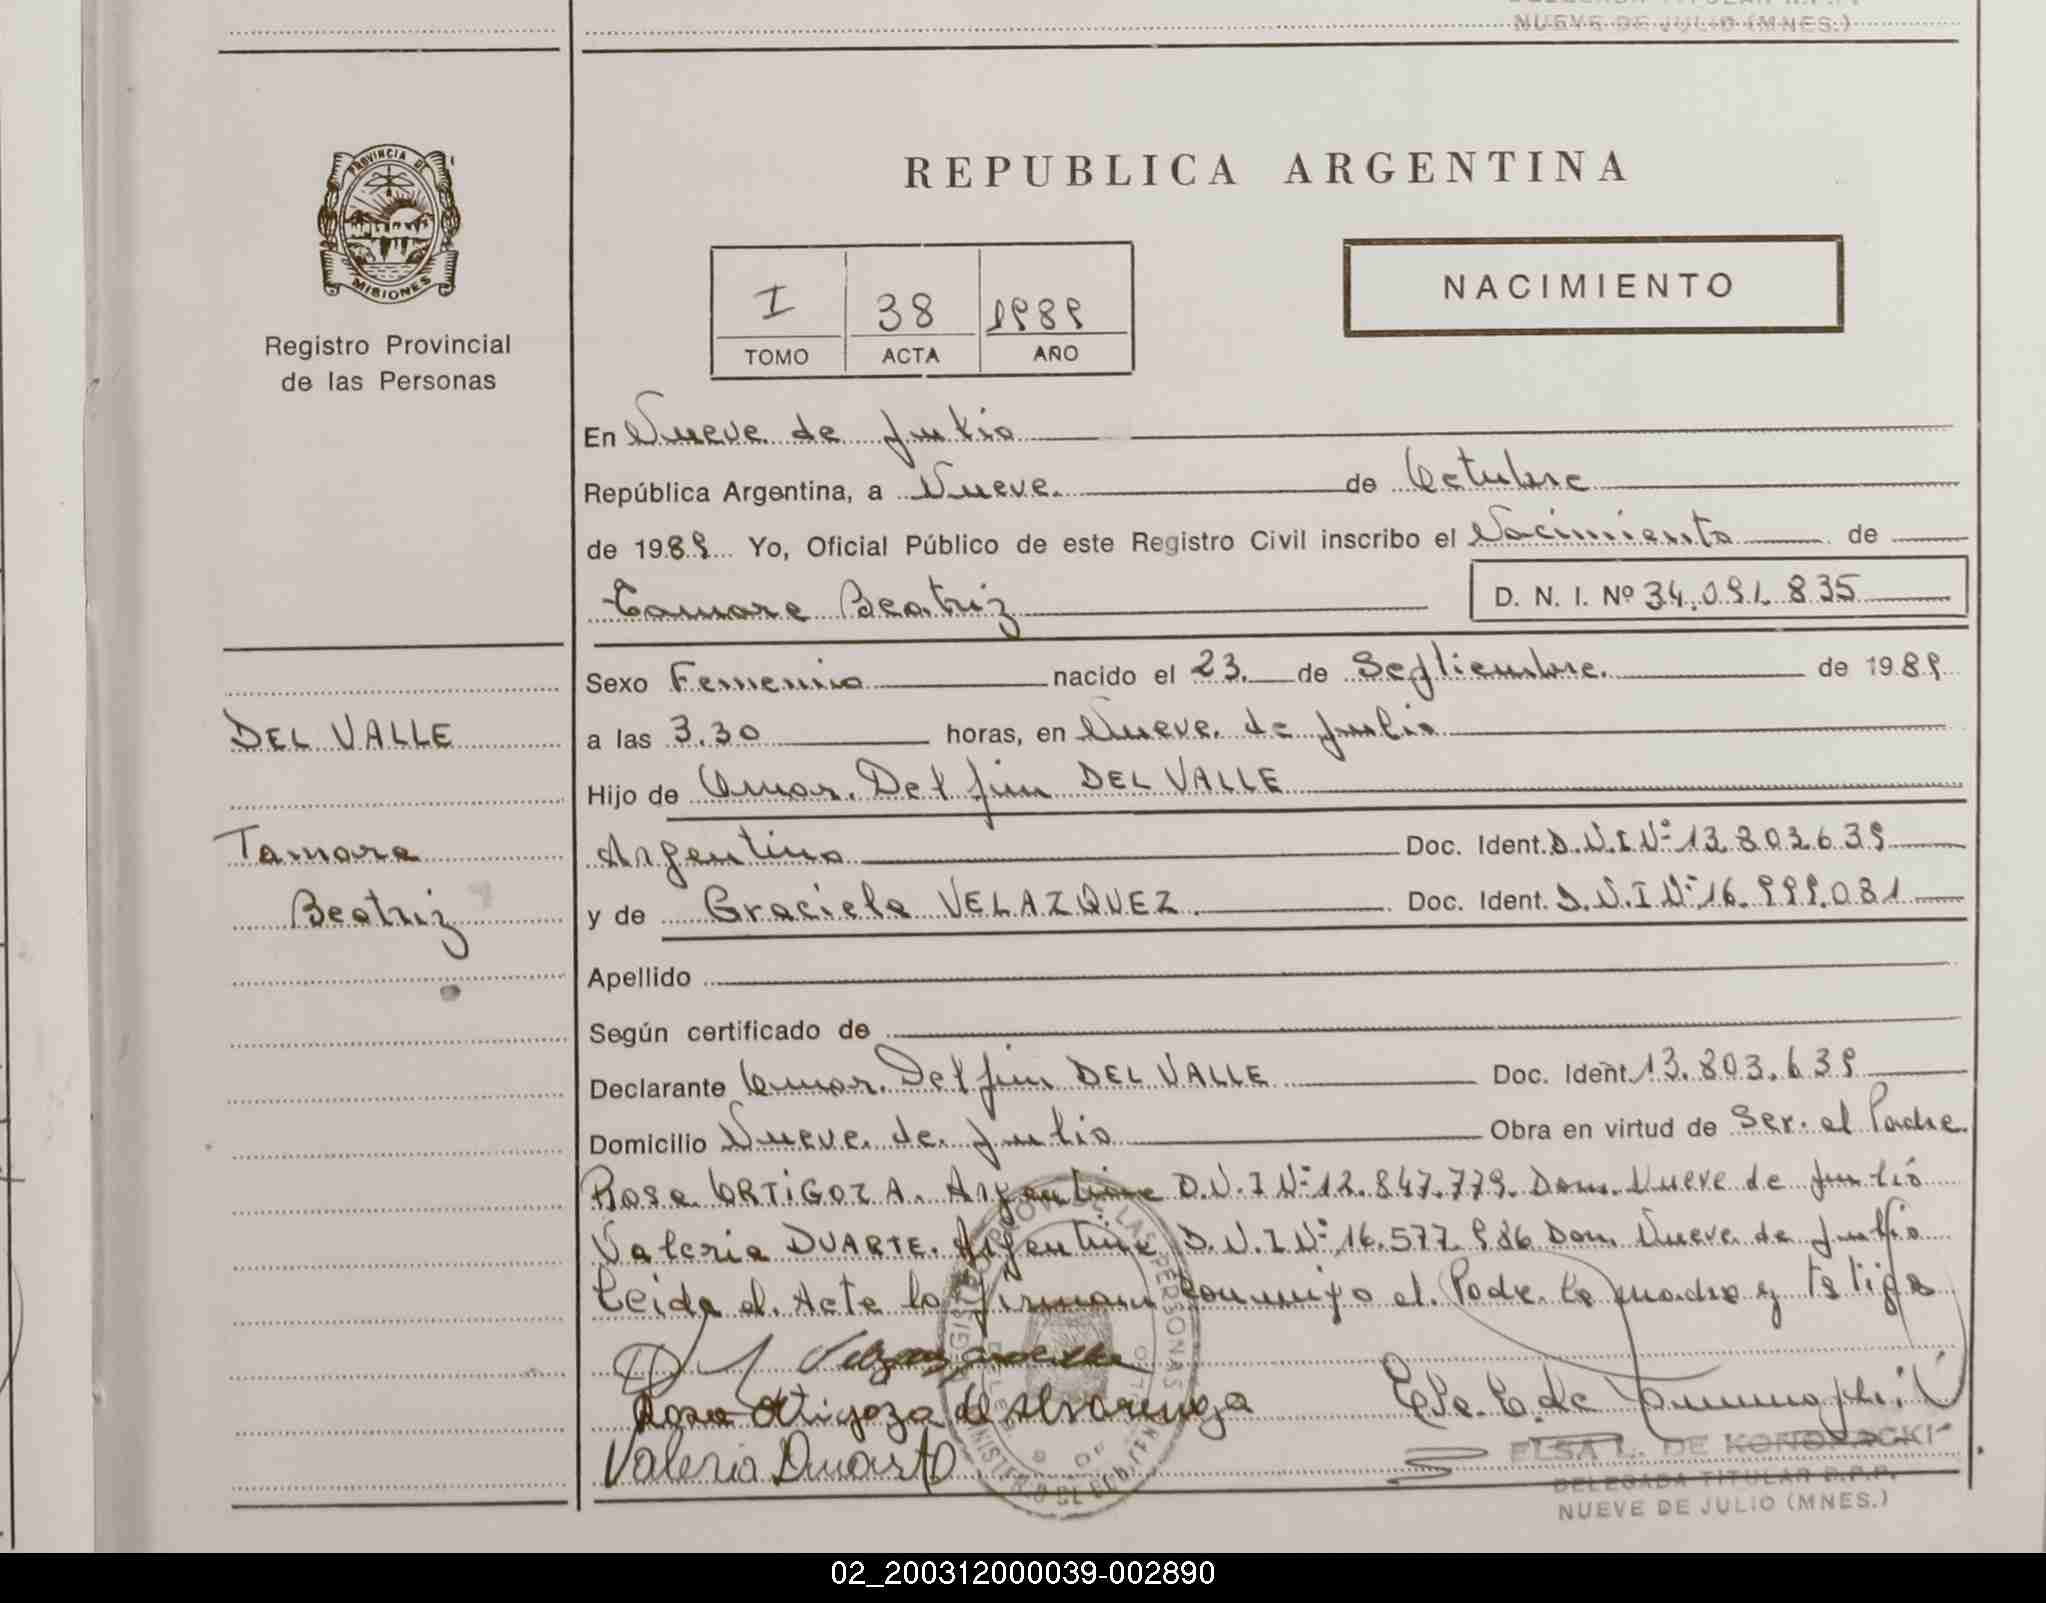 NUEVE DE JULIO (MNES.)
PROVINCIA DE
MISIONES
Registro Provincial
de las Personas
REPUBLICA ARGENTINA
NACIMIENTO
I 38 1989
TOMO ACTA AÑO
En Nueve de Julio
República Argentina, a Nueve de Octubre
de 1989 Yo, Oficial Público de este Registro Civil inscribo el Nacimiento de
Tamara Beatriz
D. N. I. Nº 34.091.835
DEL VALLE
Tamara
Beatriz
Sexo Femenino nacido el 23 de Septiembre de 1989
a las 3.30 horas, en Nueve de Julio
Hijo de Omar Delfin DEL VALLE
Argentino Doc. Ident. D.N.I Nº 13.803.639
y de Graciela VELAZQUEZ Doc. Ident. D.N.I Nº 16.999.081
Apellido
Según certificado de
Declarante Omar Delfin DEL VALLE Doc. Ident. 13.803.639
Domicilio Nueve de Julio Obra en virtud de Ser el Padre
Rosa ORTIGOZA. Argentina D.N.I Nº 12.847.779. Dom. Nueve de Julio
Valeria DUARTE. Argentina D.N.I Nº 16.577.986 Dom. Nueve de Julio
Leida el Acta la firman conmigo el Padre la madre y testigo
Rosa Ortigoza de Alvarenga
Valeria Duarte
ELSA L. DE KONOPACKI
DELEGADA TITULAR R.P.P.
NUEVE DE JULIO (MNES.)
02_200312000039-002890